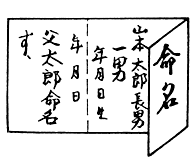 命名
山本太郎長男
一男
年月日生
年月日
父太郎命名
す